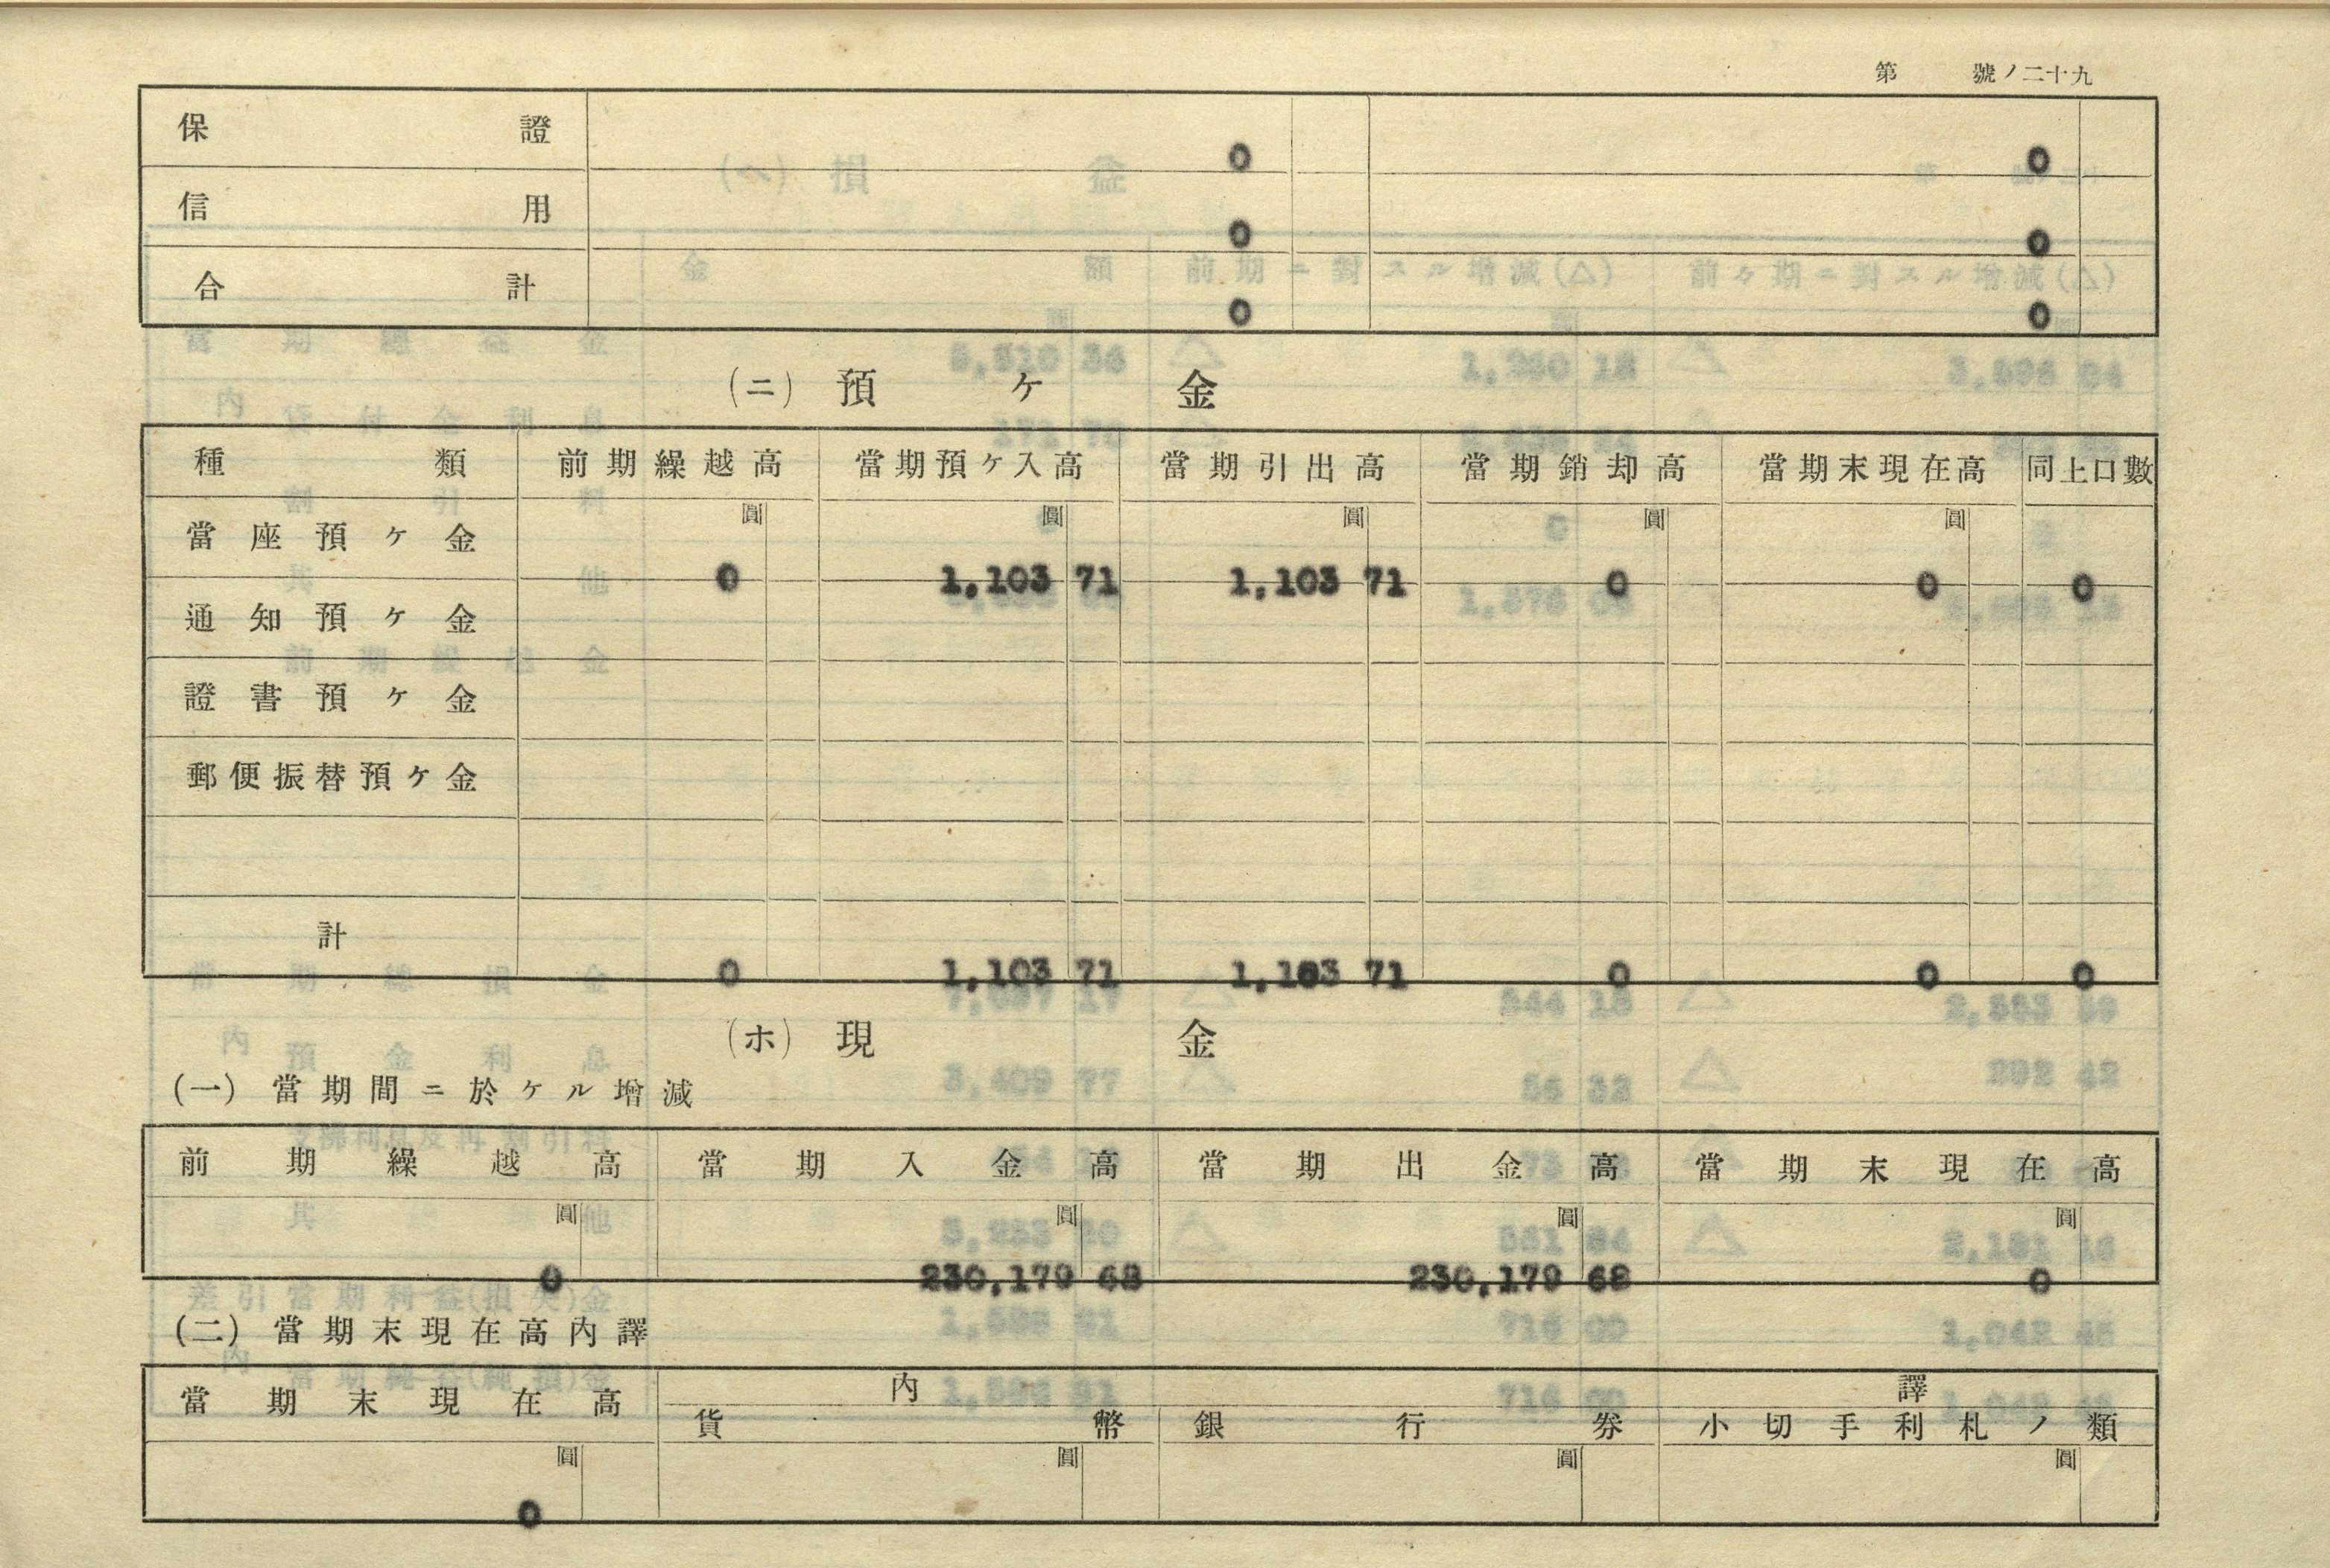 第 號ノ二十九
保證 0 0
信用 0 0
合計 0 0
(ニ) 預ケ金
種類 前期繰越高 當期預ケ入高 當期引出高 當期銷却高 當期末現在高 同上口數
圓 圓 圓 圓 圓
當座預ケ金 0 1,103 71 1,103 71 0 0 0
通知預ケ金
證書預ケ金
郵便振替預ケ金
計 0 1,103 71 1,103 71 0 0 0
(ホ) 現金
(一) 當期間ニ於ケル增減
前期繰越高 當期入金高 當期出金高 當期末現在高
圓 圓 圓 圓
0 230,179 68 230,179 68 0
(二) 當期末現在高內譯
當期末現在高 內譯
貨幣 銀行券 小切手利札ノ類
圓 圓 圓 圓
0